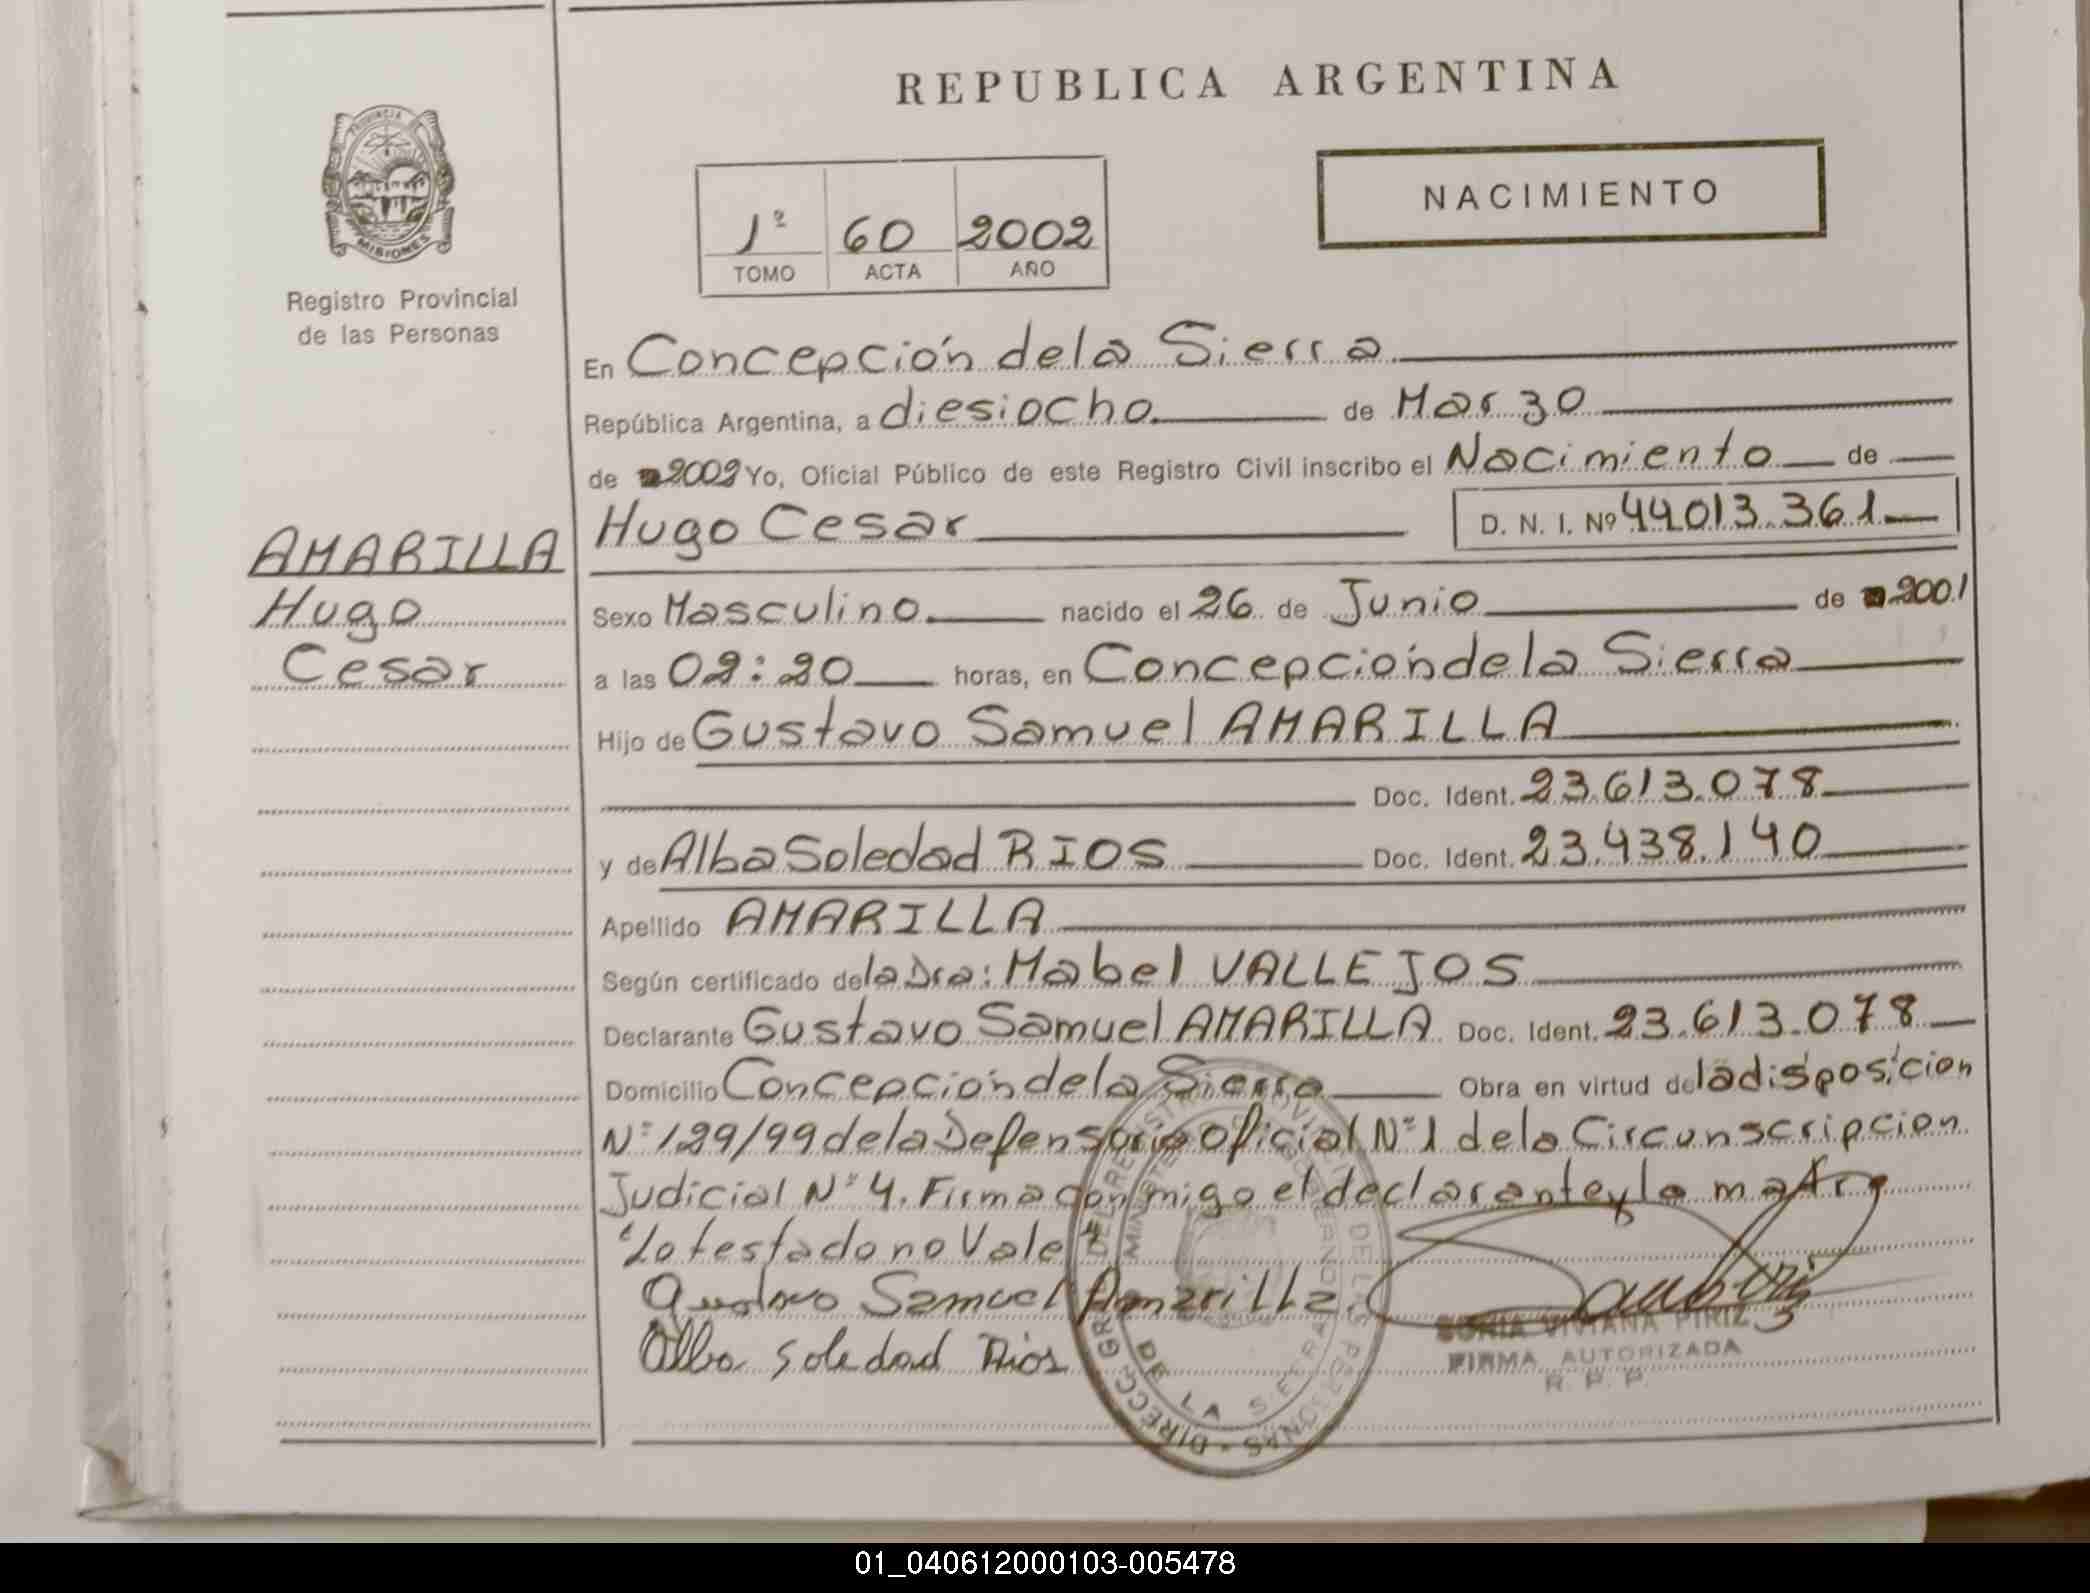 REPUBLICA ARGENTINA
PROVINCIA DE
MISIONES
Registro Provincial
de las Personas
1º 60 2002
TOMO ACTA AÑO
NACIMIENTO
En Concepción de la Sierra
República Argentina, a diesiocho de Marzo
de 2002 Yo, Oficial Público de este Registro Civil inscribo el Nacimiento de
Hugo Cesar D. N. I. Nº 44013.361
AMARILLA
Hugo
Cesar
Sexo Masculino nacido el 26 de Junio de 2001
a las 02:20 horas, en Concepción de la Sierra
Hijo de Gustavo Samuel AMARILLA
Doc. Ident. 23.613.078
y de Alba Soledad RIOS Doc. Ident. 23.438.140
Apellido AMARILLA
Según certificado de la Dra: Mabel VALLEJOS
Declarante Gustavo Samuel AMARILLA Doc. Ident. 23.613.078
Domicilio Concepción de la Sierra Obra en virtud de la disposicion
Nº 129/99 de la Defensoria Oficial Nº 1 de la Circunscripcion
Judicial Nº 4. Firma conmigo el declarante y la madre
"Lo testado no Vale"
Gustavo Samuel Amarilla
Alba Soledad Rios
SONIA VIVIANA PIRIZ
FIRMA AUTORIZADA
R. P. P.
DIRECC. GRAL. DEL REGISTRO PROVINCIAL DE LAS PERSONAS
DE LA SIERRA
01_040612000103-005478